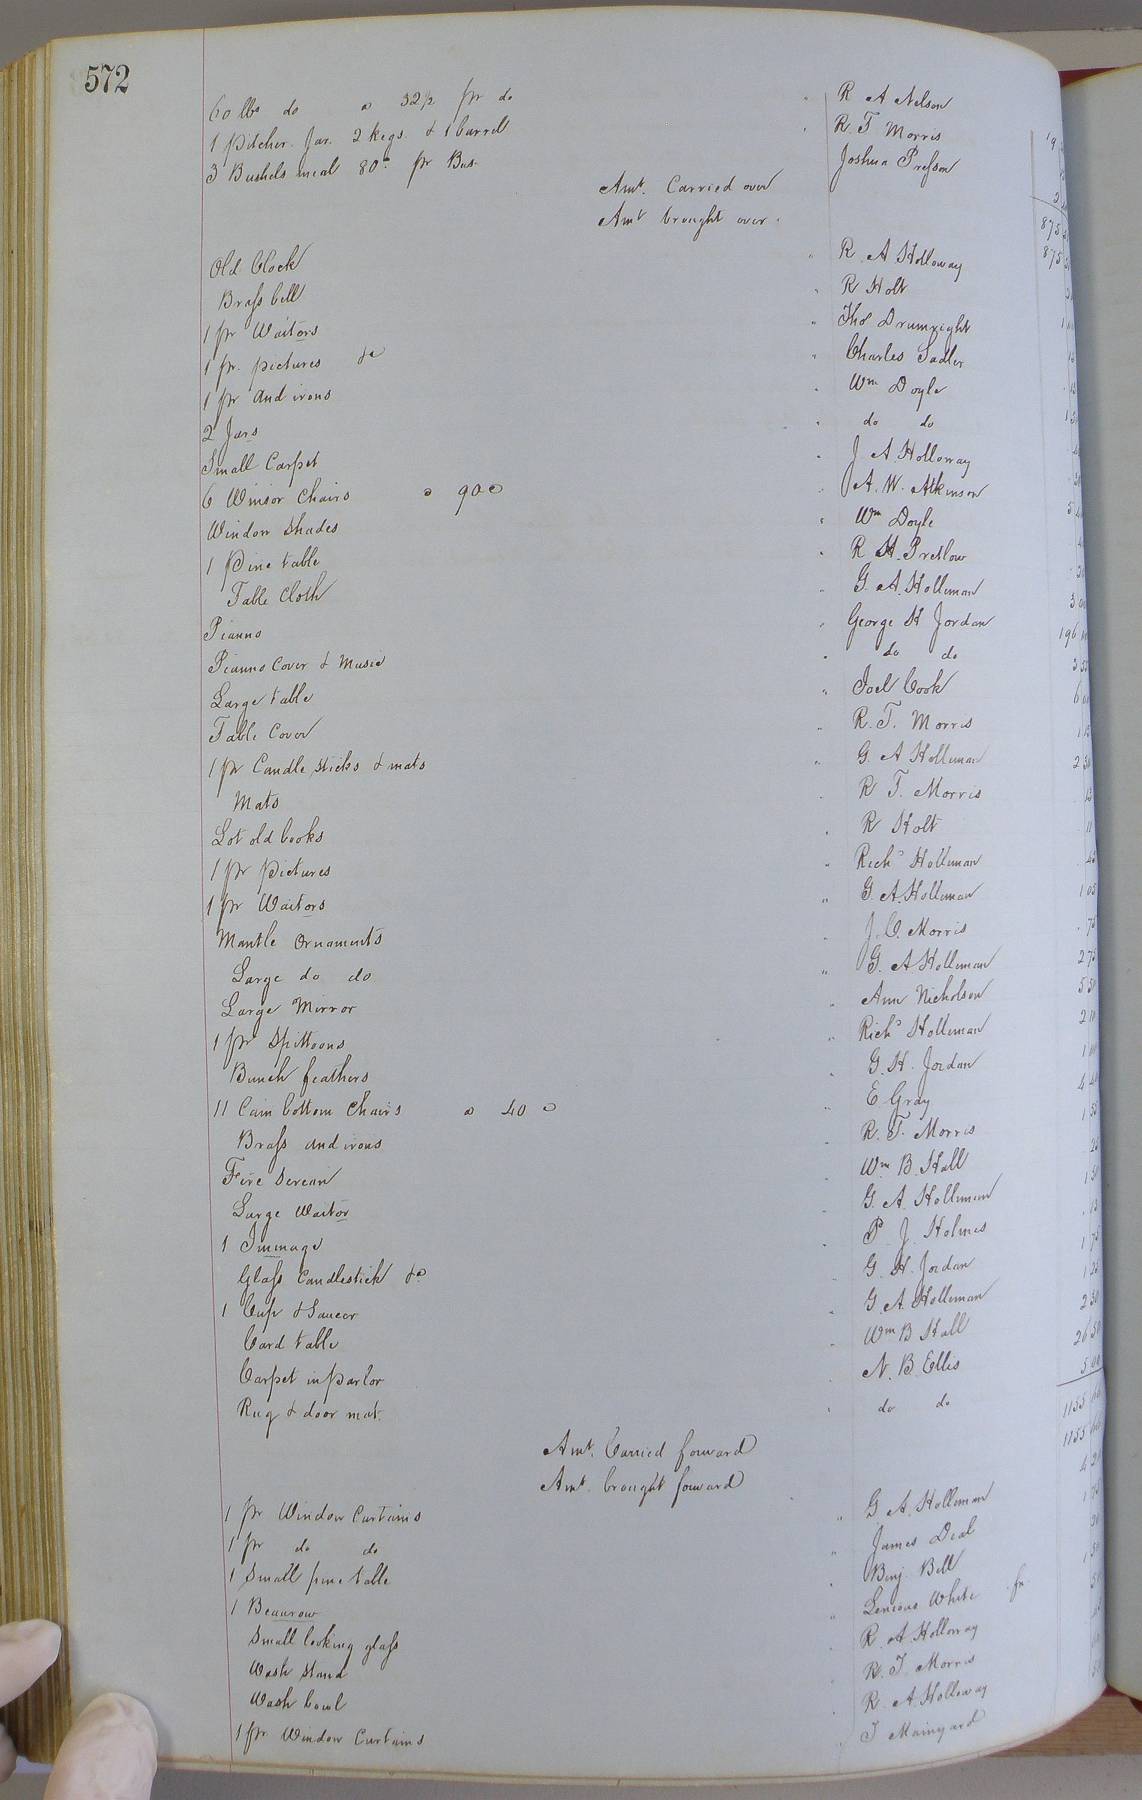 572
60 lbs do a 32½ pr do R A Nelson
1 Pitcher. Jar. 2 kegs & 1 barrell R. T Morris 19
3 Bushels meal 80c pr Bus. Joshua Presson 2
Amt. Carried over 875
Amt brought over 875
Old Clock R. A Holloway
Brass bell R Holt
1 pr Waitors Thos Drumright 1
1 pr. pictures &c Charles Sadler
1 pr And irons Wm Doyle
2 Jars do do 1
Small Carpet J A. Holloway
6 Winsor Chairs a 90c A. W. Atkinson 5
Window Shades Wm Doyle
1 Pine table R. H. Pretlow
Table Cloth G. A. Holleman 3
Pianno George H Jordan 196
Pianno Cover & Music do do 2
Large table Joel Cook 6
Table Cover R. T. Morris 1
1 pr Candle sticks & mats G. A Holleman 2
Mats R T. Morris
Lot old books R Holt
1 pr pictures Richd Holleman
1 pr Waitors G. A. Holleman 1 05
Mantle Ornaments J. O. Morris 75
Large do do G. A Holleman 2 75
Large Mirror Ann Nicholson 5 50
1 pr Spittoons Richd Holleman 2
Bunch feathers G. H. Jordan 1
11 Cain bottom Chairs a 40 c E Gray 4 40
Brass and irons R. T. Morris 1
Fire Screan Wm B. Hall 25
Large Waitor G. A. Holleman 1 50
1 Immage P J. Holmes
Glass Candlestick &c G. H. Jordan 1 75
1 Cup & Saucer G. A. Holleman 1 25
Card table Wm B Hall 2 50
Carpet in parlor N. B. Ellis 26 50
Rug & door mat. do do 5 00
Amt. Carried forward 1155
Amt. brought forward 1155
1 pr Window Curtains G A. Holleman 4
1 pr do do James Deal 1
1 Small pine table Benj Bell
1 Beaurow White 1
Small looking glass R. A Holloway
Wash Stand R. T. Morris
Wash bowl R. A Holloway
1 pr Window Curtains T Mainyard